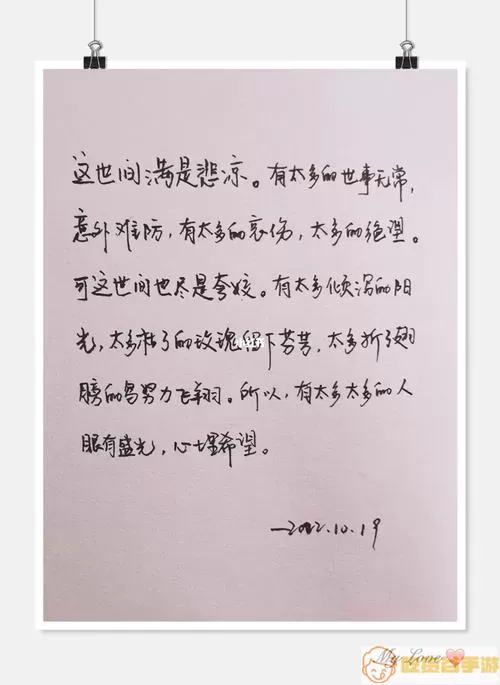 这世间满是悲凉。有太多的世事无常，
意外难防，有太多的哀伤，太多的绝望。
可这世间也尽是夸姣。有太多倾泻的阳
光，太多枯了的玫瑰留下芬芳，太多折了翅
膀的鸟努力飞翔。所以，有太多太多的人
眼有盛光，心埋希望。
—2022.10.19
My Love